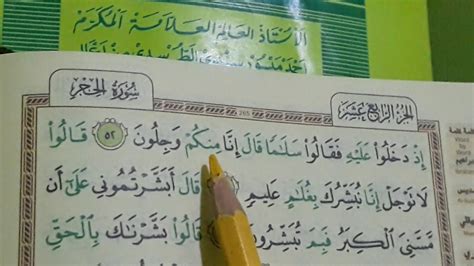 الأستاذ العالم العلامة المكرم
أحمد منصور
الجزء الرابع عشر سورة الحجر
إِذْ دَخَلُوا۟ عَلَيْهِ فَقَالُوا۟ سَلَٰمًا قَالَ إِنَّا مِنكُمْ وَجِلُونَ ٥٢ قَالُوا۟
لَا تَوْجَلْ إِنَّا نُبَشِّرُكَ بِغُلَٰمٍ عَلِيمٍ قَالَ أَبَشَّرْتُمُونِى عَلَىٰٓ أَن
مَّسَّنِىَ ٱلْكِبَرُ فَبِمَ تُبَشِّرُونَ قَالُوا۟ بَشَّرْنَٰكَ بِٱلْحَقِّ